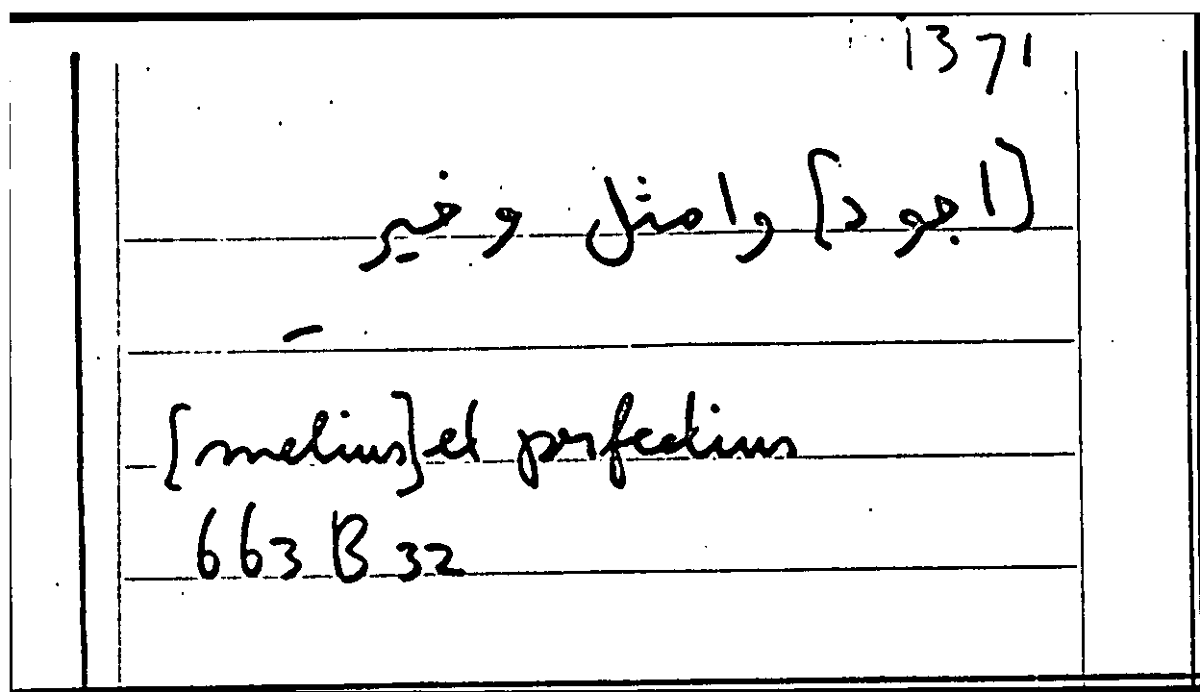 1371
[اجود] وامثل وخير
[melius] et perfectius
663 B 32